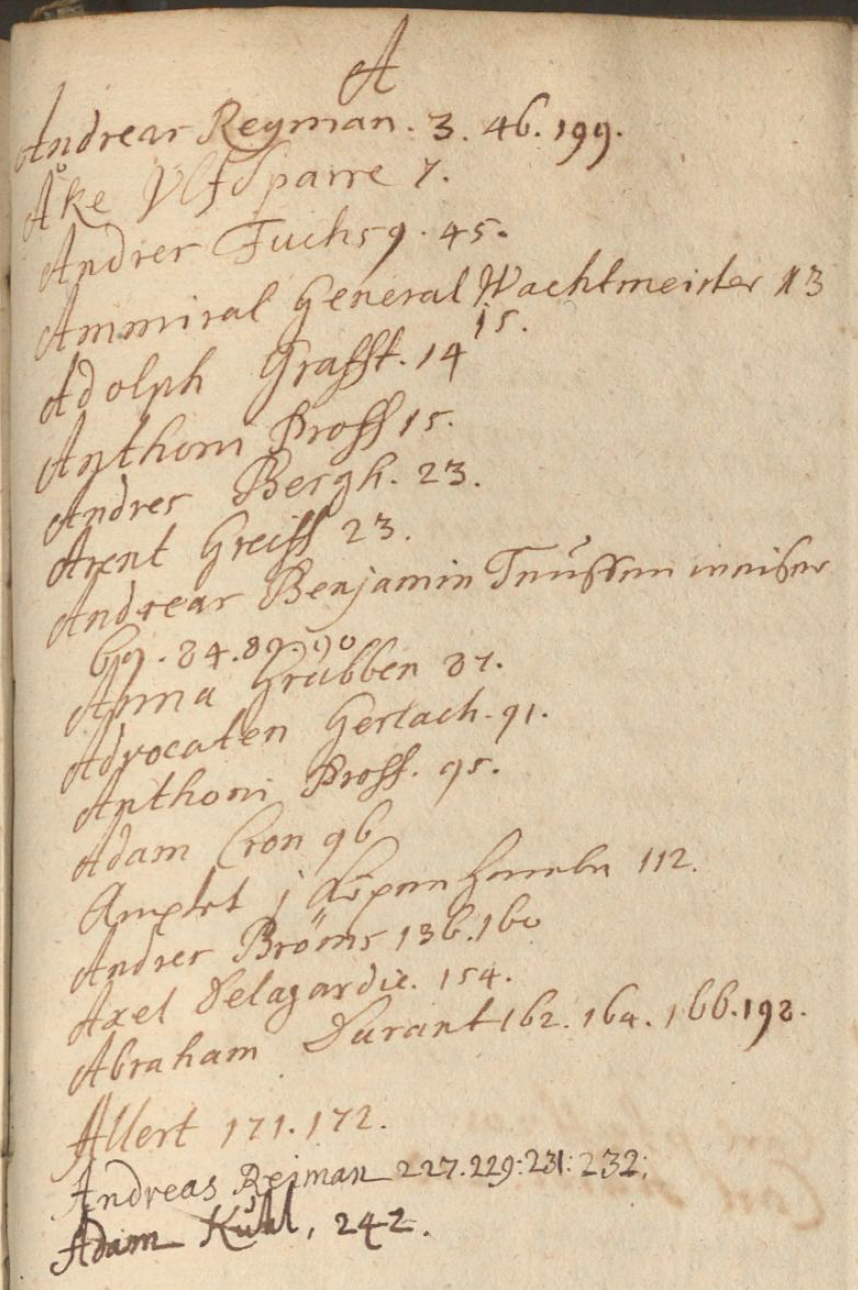 A
Andreas Reyman. 3. 46. 199.
Åke Ulfsparre 7.
Andres Fuchs 9. 45.
Ammiral General Wachtmeister 113
15.
Adolph Grafft. 14
Anthoni Proff 15.
Andres Bergh. 23.
Arent Greiff 23.
Andreas Benjamin
69. 84. 89. 90
Anna Grubben 87.
Advocaten Gerlach. 91.
Anthoni Proff. 95.
Adam Cron 96
112.
Andres Bröms 136. 160
Axel Delagardie. 154.
Abraham Durant 162. 164. 166. 198.
Allert 171. 172.
Andreas Reiman 227. 229: 231: 232:
Adam Kühl, 242.